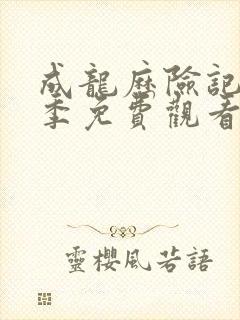 成龍歷險記
季免費觀看
靈櫻風若語